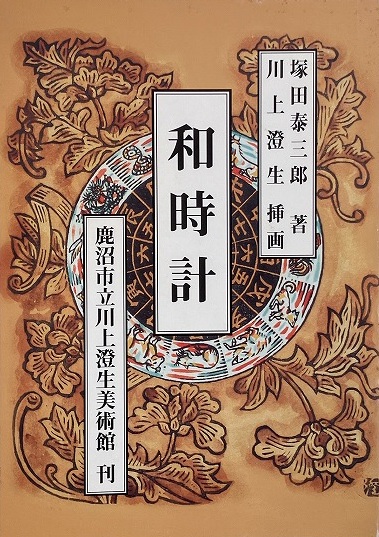 塚田泰三郎 著
川上澄生 挿画
和時計
鹿沼市立川上澄生美術館 刊